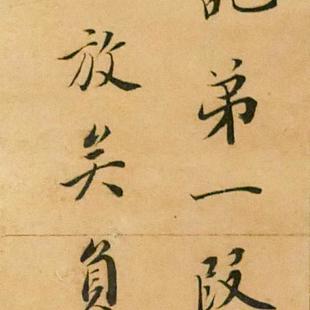 弟一段
放矣負